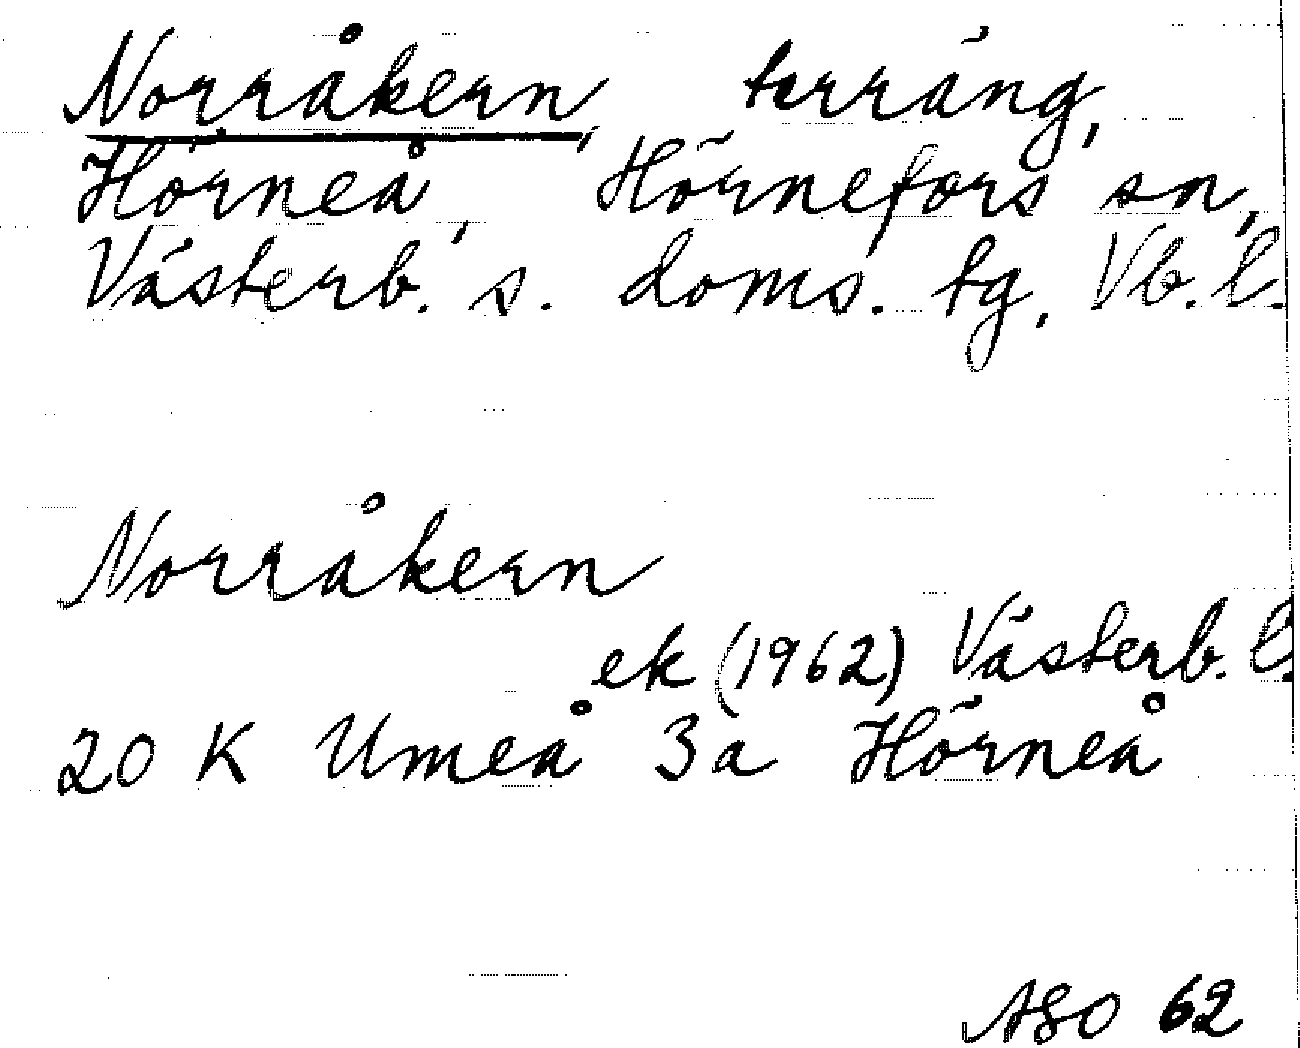 Norråkern, terräng,
Hörneå, Hörnefors sn,
Västerb. s. doms. tg, Vb. l.
Norråkern
ek (1962) Västerb. l.
20 K Umeå 3a Hörneå
ASO 62